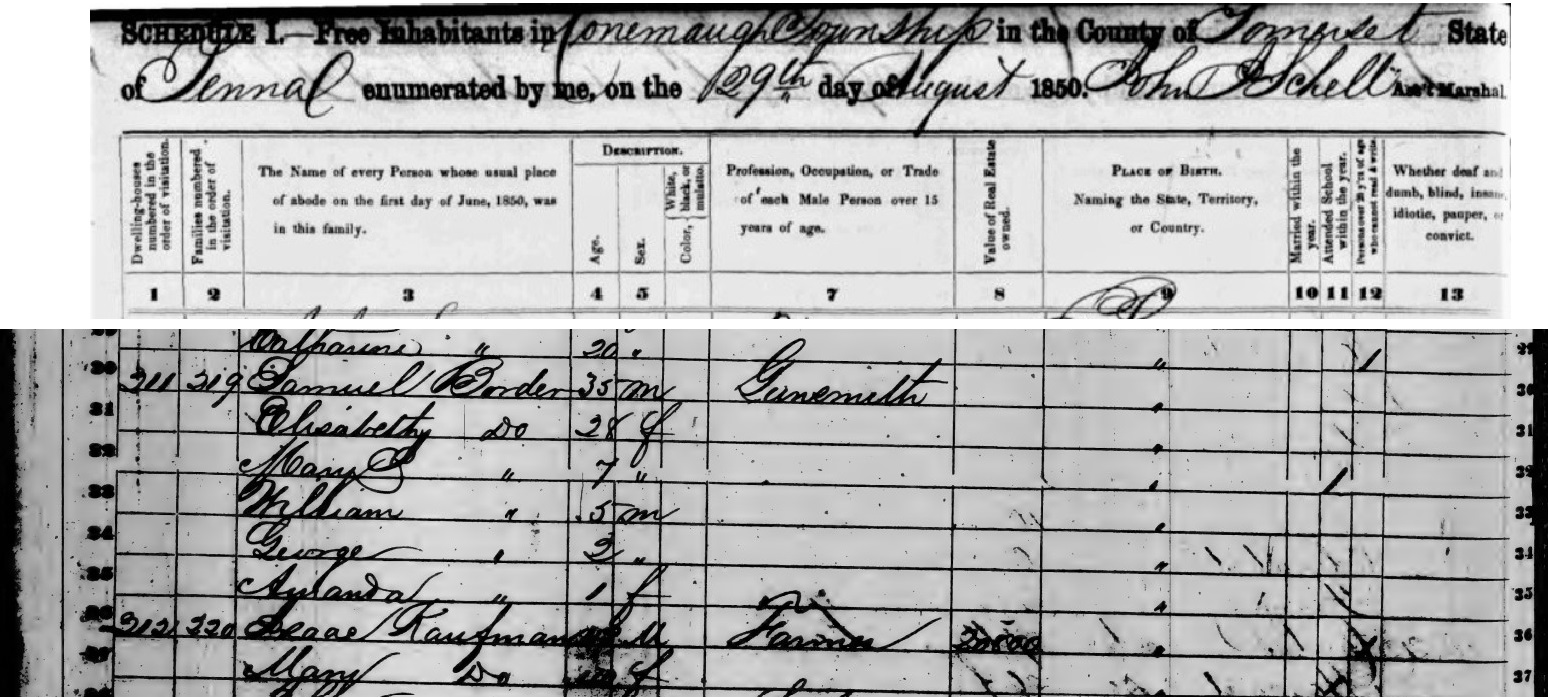 SCHEDULE I.—Free Inhabitants in Conemaugh Township in the County of Somerset State
of Penna enumerated by me, on the 29th day of August 1850. John P Schell Ass't Marshal
DESCRIPTION.
Dwelling-houses numbered in the order of visitation.
Families numbered in the order of visitation.
The Name of every Person whose usual place of abode on the first day of June, 1850, was in this family.
Age.
Sex.
Color, { White, black, or mulatto.
Profession, Occupation, or Trade of each Male Person over 15 years of age.
Value of Real Estate owned.
PLACE OF BIRTH. Naming the State, Territory, or Country.
Married within the year.
Attended School within the year.
Persons over 20 y'rs of age who cannot read & write.
Whether deaf and dumb, blind, insane, idiotic, pauper, or convict.
1 2 3 4 5 7 8 9 10 11 12 13
Catharine " 20 " " 1 29
30 311 319 Samuel Border 35 m Gunsmith " 30
31 Elisabeth Do 28 f " 31
32 Mary " 7 " " 1 32
33 William " 5 m " 33
34 George " 2 " " 34
35 Amanda " 1 f " 35
36 312 320 Isaac Kaufman M Farmer " 36
37 Mary Do f 37